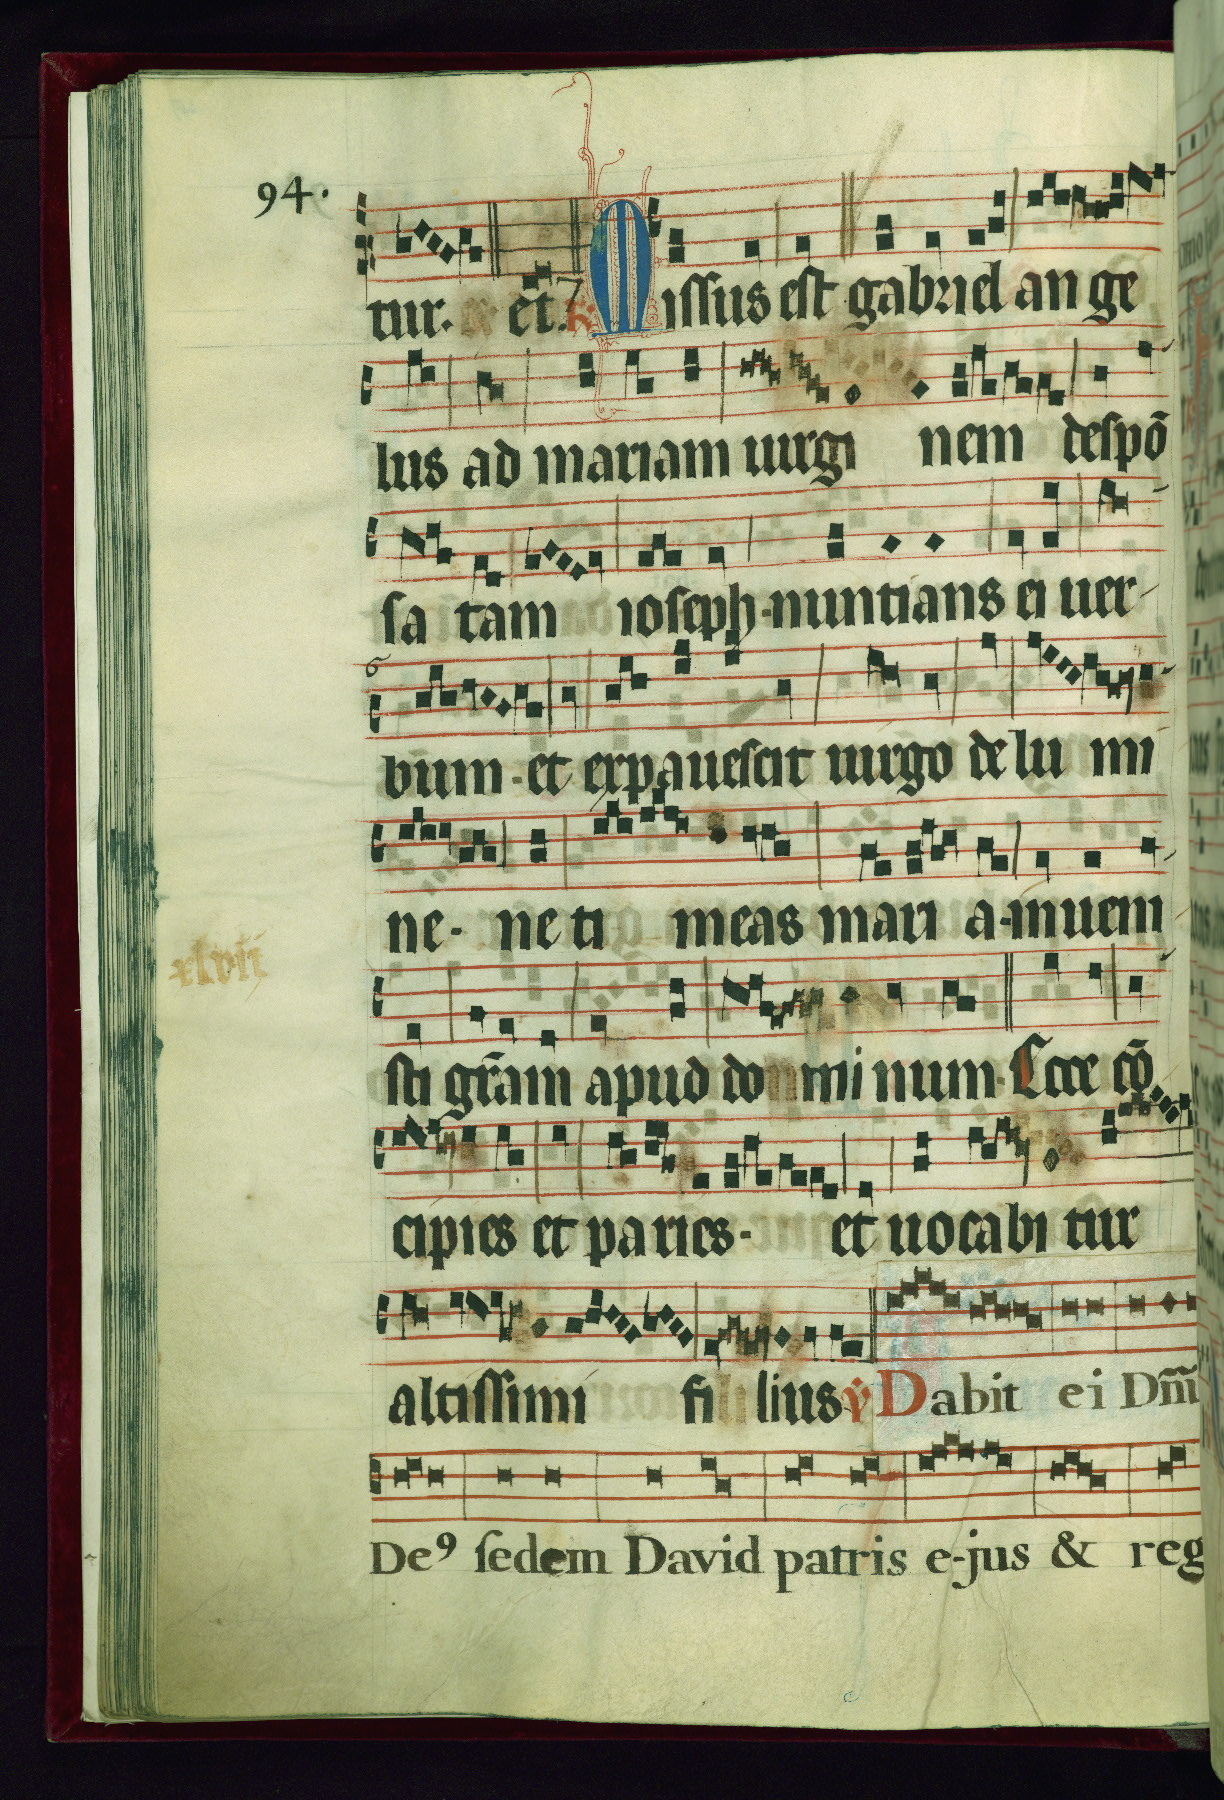 94.
tur. et. 7 R. Missus est gabriel an ge
lus ad mariam uirgi nem despõ
sa tam ioseph. nuntians ei uer
bũm. et expauescit uirgo de lu mi
ne. ne ti meas mari a. inueni
xlvii
sti grãm apud do mi num. Ecce cõ
cipies et pa ries. et uocabi tur
altissimi fi lius V. Dabit ei Dm̃
De9 sedem David patris e-jus & reg